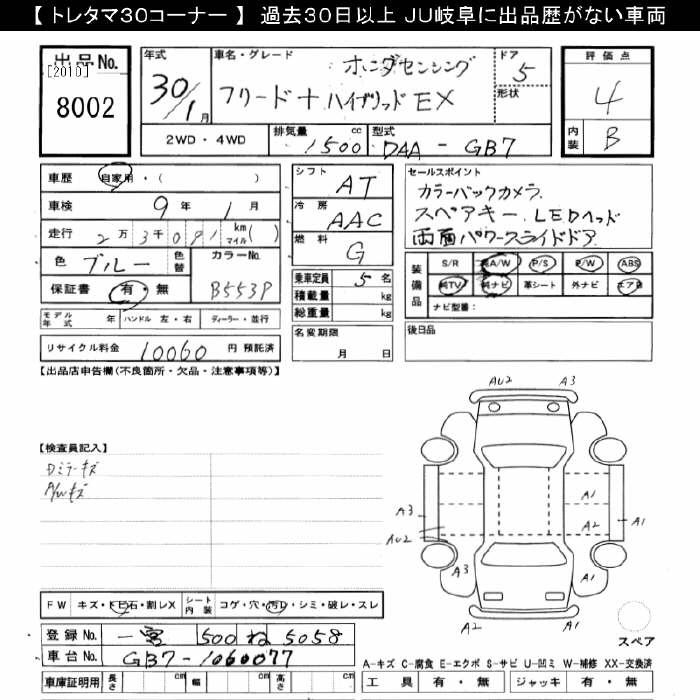 【 トレタマ30コーナー 】 過去30日以上 JU岐阜に出品歴がない車両
出品No.
[2010]
8002
年式
30/1月
車名・グレード
ホンダセンシング
フリード+ ハイブリッド EX
ドア
5
形状
評価点
4
内装
B
2WD・4WD
排気量 1500 cc
型式 DAA - GB7
車歴 自家用・( )
車検 9年 1月
走行 2万3千091 km マイル( )
色 ブルー 色替
カラーNo. B553P
保証書 有・無
モデル年式 年 ハンドル 左・右 ディーラー・並行
リサイクル料金 10060 円 預託済
シフト AT
冷房 AAC
燃料 G
乗車定員 5 名
積載量 kg
総重量 kg
名変期限
月 日
セールスポイント
カラーバックカメラ
スペアキー、LEDヘッド
両面パワースライドドア
装備品
S/R 純A/W P/S P/W ABS
純TV 純ナビ 革シート 外ナビ エアB
ナビ型番:
後日品
【出品店申告欄(不良箇所・欠品・注意事項等)】
【検査員記入】
Dミラーキズ
A/Wキズ
AU2 A3
A1
A3 A2 A1
AU2
A3 A1
A2
スペア
FW キズ・トビ石・割レX
シート内装 コゲ・穴・汚レ・シミ・破レ・スレ
登録No. 一宮 500 ね 5058
車台No. GB7-1060077
車庫証明用 長さ cm 幅 cm 高さ cm
A-キズ C-腐食 E-エクボ S-サビ U-凹ミ W-補修 XX-交換済
工具 有・無 ジャッキ 有・無